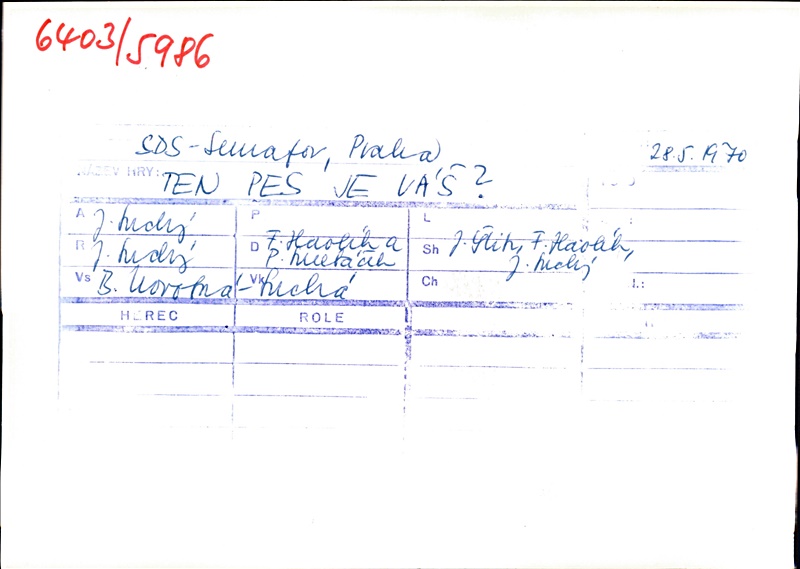 6403/5986
SDS-Semafor, Praha 28.5.1970
NÁZEV HRY:
TEN PES JE VÁŠ?
A J. Suchý P L
R J. Suchý D F. Havlík a Sh J. Šlitr, F. Havlík,
J. Suchý
Vs B. Novotná- Vk Suchá Ch
HEREC ROLE